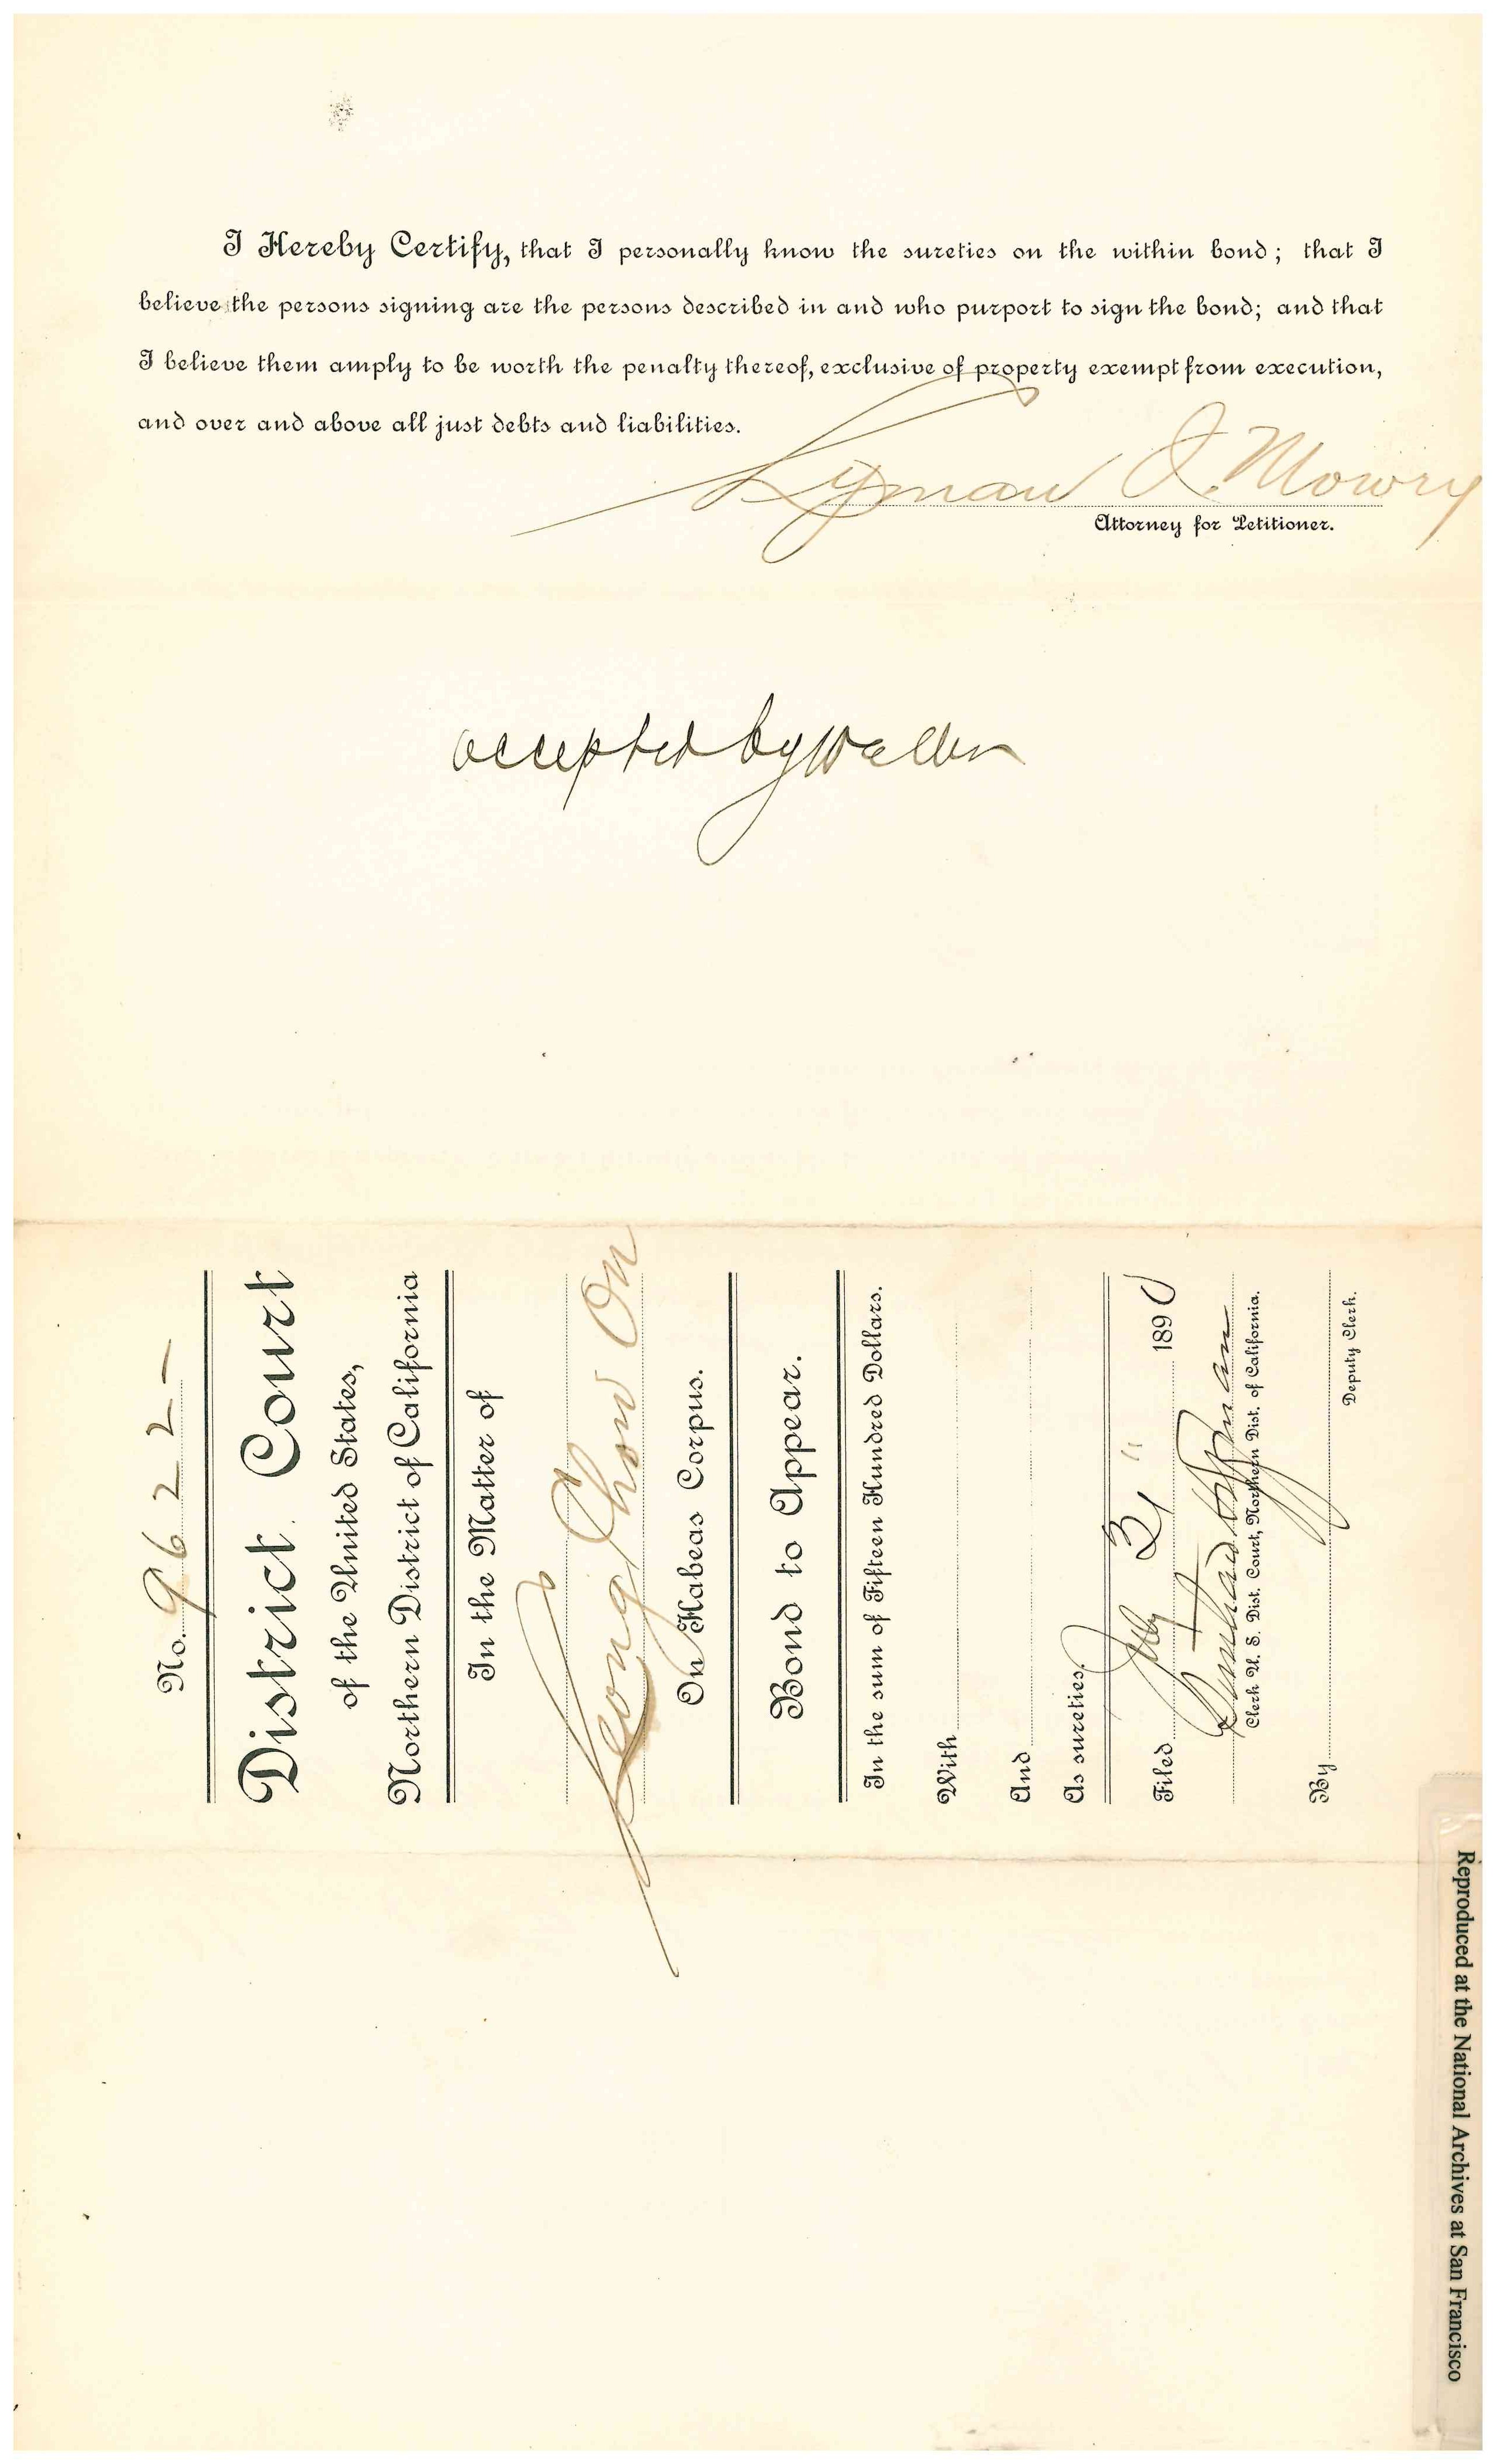 I Hereby Certify, that I personally know the sureties on the within bond; that I
believe the persons signing are the persons described in and who purport to sign the bond; and that
I believe them amply to be worth the penalty thereof, exclusive of property exempt from execution,
and over and above all just debts and liabilities.
Lyman I. Mowry
Attorney for Petitioner.
accepted by
No. 9622-
District Court
of the United States,
Northern District of California
In the Matter of
Leong Chow On
On Habeas Corpus.
Bond to Appear.
In the sum of Fifteen Hundred Dollars.
With
And
As sureties.
Filed July 31" 1890
Clerk U. S. Dist. Court, Northern Dist. of California.
By
Deputy Clerk.
Reproduced at the National Archives at San Francisco